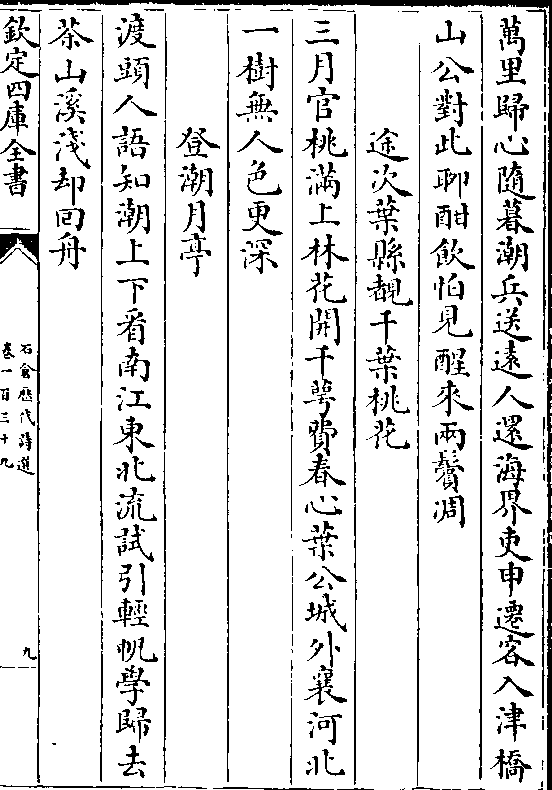 萬里歸心隨暮潮兵送遠人還海界吏申遷客入津橋
山公對此聊酣飲怕見醒來兩鬢凋
途次葉縣覩千葉桃花
三月官桃滿上林花開千萼費春心葉公城外襄河北
一樹無人色更深
登潮月亭
渡頭人語知潮上下看南江東北流試引輕帆學歸去
茶山溪淺却回舟
欽定四庫全書
石倉歷代詩選
卷一百三十九
九